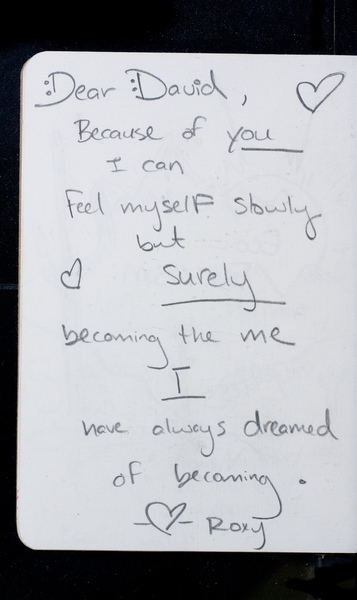 Dear David,
Because of you
I can
Feel myself slowly
but
surely
becoming the me
I
have always dreamed
of becoming.
Roxy